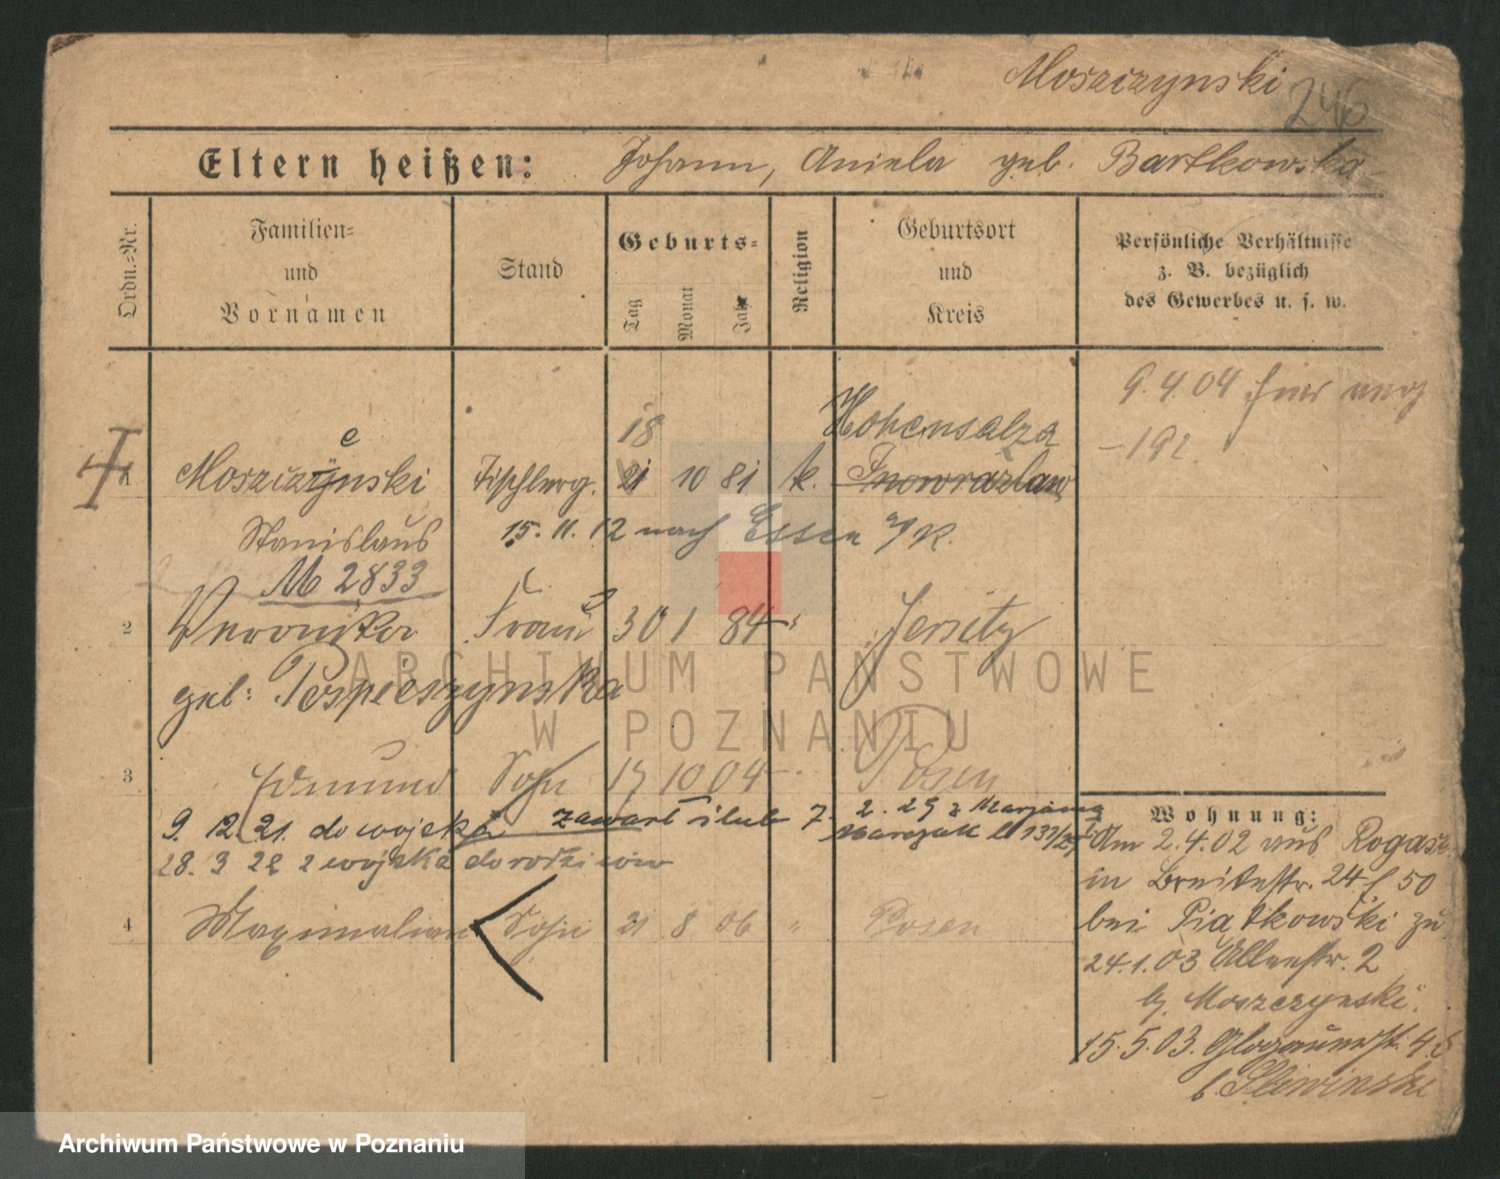 Moszczynski 246
Eltern heißen: Johann, Aniela geb. Bartkowska
Ordn.-Nr.
Familien-
und
Vornamen
Stand
Geburts-
Tag
Monat
Jahr
Religion
Geburtsort
und
Kreis
Persönliche Verhältnisse
z. B. bezüglich
des Gewerbes u. s. w.
9.4.04
18
Hohensalza
e
1 Moszczynski 21 10 81 k. Inowrazlaw
Stanislaus 15. 11. 12 nach Essen a/R.
M 2833
2 Veronika Frau 30 1 84 " Jersitz
geb: Pospieszynska
3 Edmund Sohn 17 10 04 " Posen
9. 12. 21. do wojska zawarł ślub 7. 2. 29 z Marjanną
28. 3 22 z wojska do rodziców
4 Maximilian Sohn 21 8 06 " Posen
Wohnung:
Am 2.4.02 aus Rogasen
in Breitestr. 24 f 50
bei Piątkowski zu
24.1.03 Allerstr. 2
b/ Moszczynski.
15.5.03. Glogauerstr. 4.
b Sliwinski
ARCHIWUM PAŃSTWOWE
W POZNANIU
Archiwum Państwowe w Poznaniu